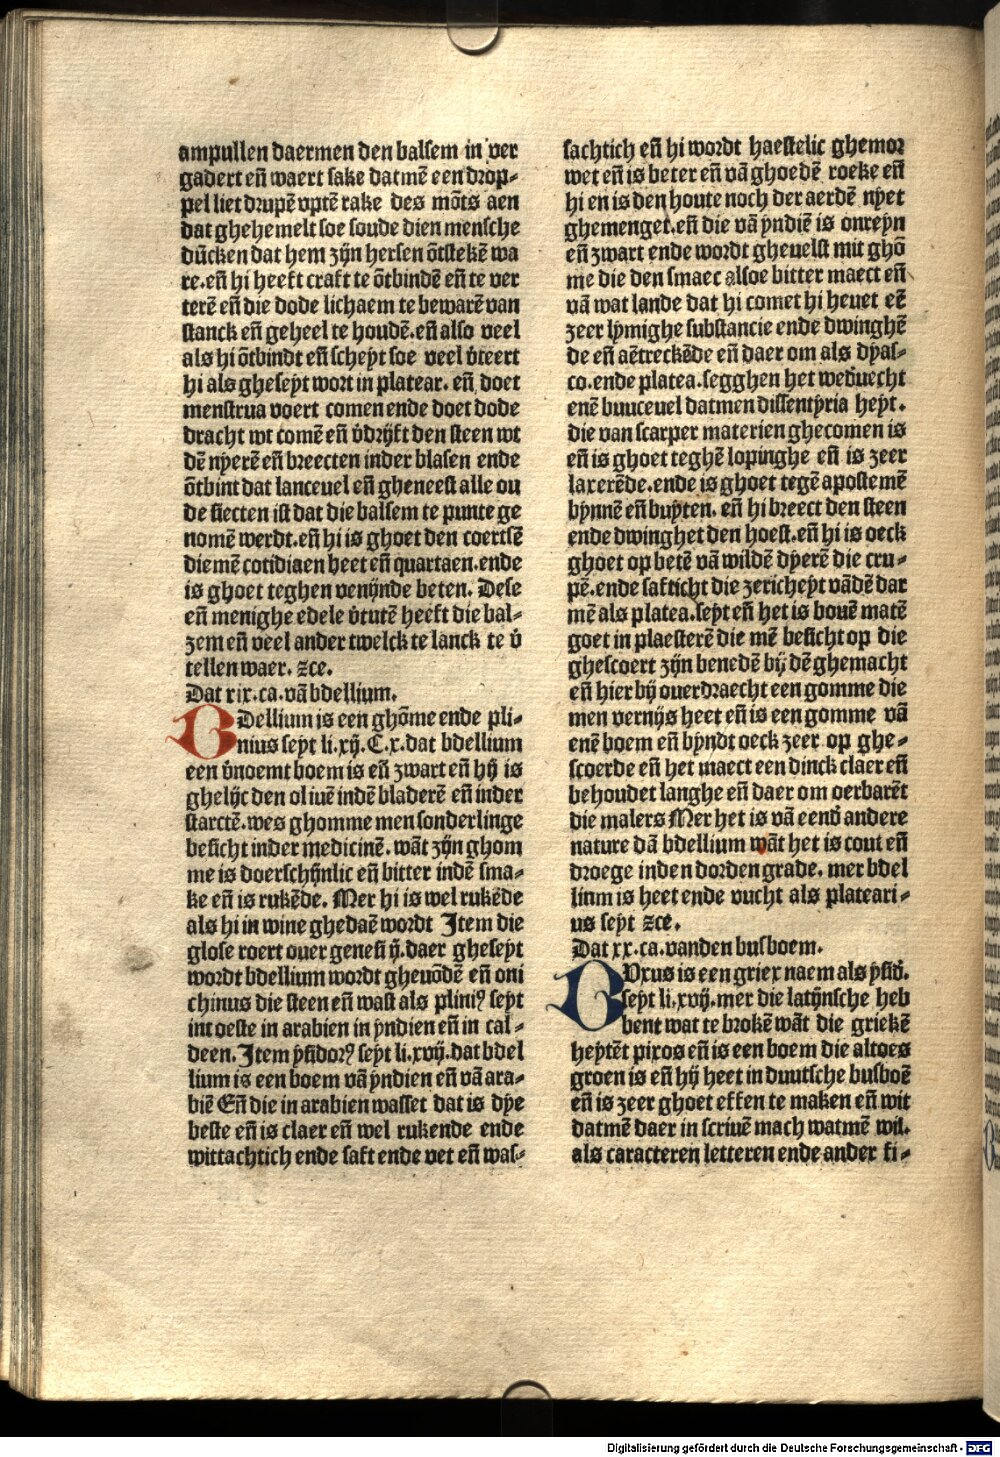 ampullen daermen den balsem in ver
gadert en̄ waert sake datmē een drop-
pel liet drupē vptē rake des mōts aen
dat ghehemelt soe soude dien mensche
dūcken dat hem zÿn hersen ōtstekē wa
re.en̄ hi heeft craft te ōtbindē en̄ te ver
terē en̄ die dode lichaem te bewarē van
stanck en̄ geheel te houdē.en̄ also veel
als hi ōtbindt en̄ scheÿt soe veel v̄teert
hi als gheseÿt wort in platear. en̄ doet
menstrua voert comen ende doet dode
dracht wt comē en̄ v̄drÿft den steen wt
dē nÿerē en̄ breecten inder blasen ende
ōtbint dat lanceuel en̄ gheneest alle ou
de siecten ist dat die balsem te punte ge
nomē werdt.en̄ hi is ghoet den coertsē
diemē cotidiaen heet en̄ quartaen.ende
is ghoet teghen venÿnde beten. Dese
en̄ menighe edele v̄tutē heeft die bal-
zem en̄ veel ander twelck te lanck te v̄
tellen waer. ꝛce.
Dat xix.ca.vā bdellium.
BDellium is een ghōme ende pli-
nius seÿt li.xij. C.x.dat bdellium
een v̄noemt boem is en̄ zwart en̄ hÿ is
ghelÿc den oliuē indē bladerē en̄ inder
starctē.wes ghomme men sonderlinge
besicht inder medicinē. wāt zÿn ghom
me is doerschÿnlic en̄ bitter indē sma-
ke en̄ is rukēde. Mer hi is wel rukēde
als hi in wine ghedaē wordt Item die
glose roert ouer genesi ij.daer gheseÿt
wordt bdellium wordt gheuōdē en̄ oni
chinus die steen en̄ wast als pliniꝰ seÿt
int oeste in arabien in ÿndien en̄ in cal-
deen. Item ÿsidorꝰ seÿt li.xvij.dat bdel
lium is een boem vā ÿndien en̄ vā ara-
biē En̄ die in arabien wasset dat is dÿe
beste en̄ is claer en̄ wel rukende ende
wittachtich ende saft ende vet en̄ was-
sachtich en̄ hi wordt haestelic ghemor
wet en̄ is beter en̄ vā ghoedē roeke en̄
hi en is den houte noch der aerdē nÿet
ghemenget.en̄ die vā ÿndiē is onreÿn
en̄ zwart ende wordt gheuelst mit ghō
me die den smaec alsoe bitter maect en̄
vā wat lande dat hi comet hi heuet eē
zeer lÿmighe substancie ende dwinghē
de en̄ aētreckēde en̄ daer om als dÿas-
co.ende platea.segghen het wed̄uecht
enē buuceuel datmen dissentÿria heÿt.
die van scarper materien ghecomen is
en̄ is ghoet teghē lopinghe en̄ is zeer
laxerēde.ende is ghoet tegē apostemē
bÿnnē en̄ buÿten. en̄ hi breect den steen
ende dwinghet den hoest.en̄ hi is oeck
ghoet op betē vā wildē dÿerē die cru-
pē.ende safticht die zericheÿt vādē dar
mē als platea.seÿt en̄ het is bouē matē
goet in plaesterē die mē besicht op die
ghescoert zÿn benedē bij dē ghemacht
en̄ hier bÿ ouerdraecht een gomme die
men vernÿs heet en̄ is een gomme vā
enē boem en̄ bÿndt oeck zeer op ghe-
scoerde en̄ het maect een dinck claer en̄
behoudet langhe en̄ daer om oerbarēt
die malers Mer het is vā eend̄ andere
nature dā bdellium wāt het is cout en̄
droege inden dorden grade. mer bdel
linm is heet ende vucht als plateari-
us seÿt ꝛce.
Dat xx.ca.vanden busboem.
BVxus is een griex naem als ÿsid̄.
seÿt li.xvij.mer die latÿnsche heb
bent wat te brokē wāt die griekē
heÿtēt pixos en̄ is een boem die altoes
groen is en̄ hÿ heet in duutsche busboē
en̄ is zeer ghoet effen te maken en̄ wit
datmē daer in scriuē mach watmē wil.
als caracteren letteren ende ander fi-
Digitalisierung gefördert durch die Deutsche Forschungsgemeinschaft - DFG